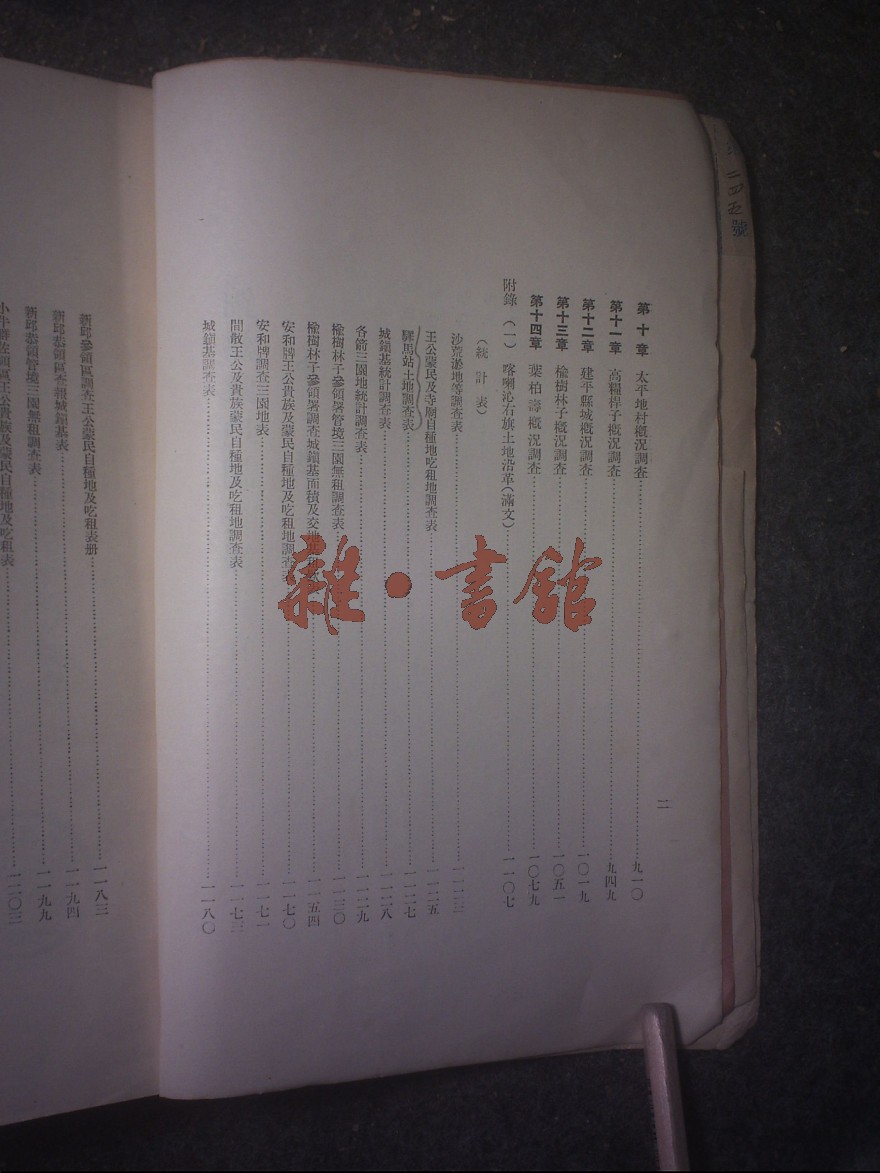 二四五號
二
第十章 太平地村概況調查……九一〇
第十一章 高糧桿子概況調查……九四九
第十二章 建平縣城概況調查……一〇一九
第十三章 楡樹林子概況調查……一〇五一
第十四章 葉柏壽概況調查……一〇七九
附錄(一) 喀喇沁右旗土地沿革(滿文)……一一〇七
(統計表)
沙荒淤地等調查表……一一二三
王公蒙民及寺廟自種地吃租地調查表……一一二五
驛馬站土地調查表……一一二七
城鎮基統計調查表……一一二八
各箭三園地統計調查表……一一二九
楡樹林子參領署管境三園無租調查表……一一三〇
楡樹林子參領署調查城鎮基面積及交地……一一五四
安和牌王公貴族及蒙民自種地及吃租地調查表……一一七〇
安和牌調查三園地表……一一七一
閒散王公及貴族蒙民自種地及吃租地調查表……一一七三
城鎮基調查表……一一八〇
新邱參領區調查王公蒙民自種地及吃租表册……一一八三
新邱參領區查報城鎮基表……一一九四
新邱參領管境三園無租調查表……一一九九
小牛群參領區王公貴族及蒙民自種地及吃租表……一二〇三
雜·書館